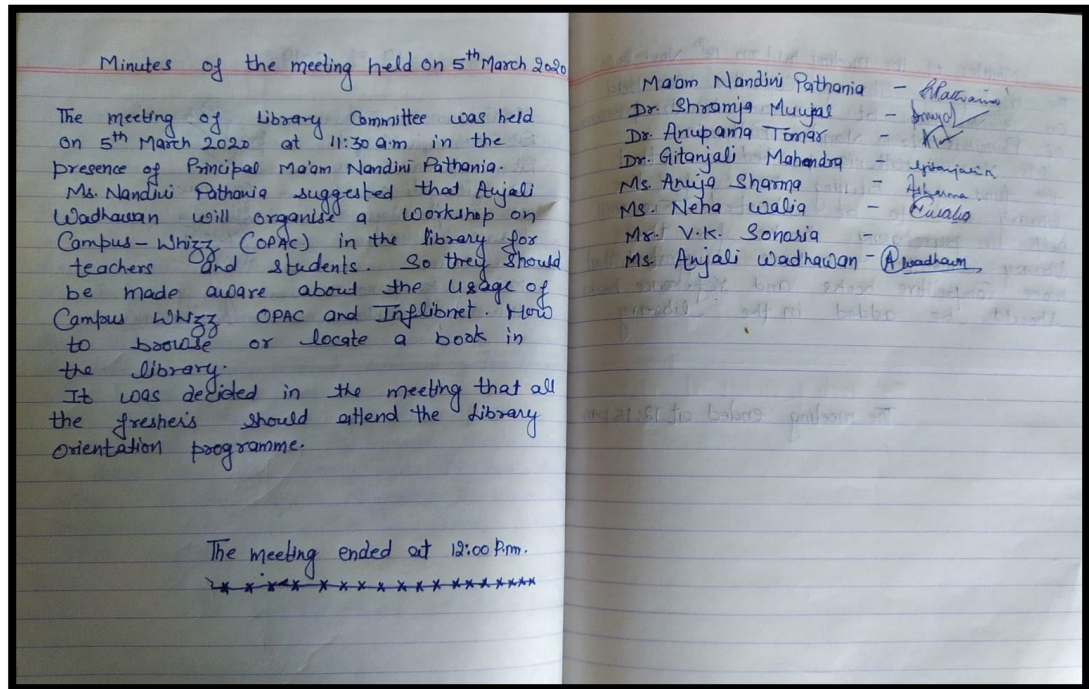 Minutes of the meeting held on 5th March 2020
The meeting of Library Committee was held
on 5th March 2020 at 11:30 a.m in the
presence of Principal Ma'am Nandini Pathania.
Ms. Nandini Pathania suggested that Anjali
Wadhawan will organise a workshop on
Campus-Whizz (OPAC) in the library for
teachers and students. So they should
be made aware about the usage of
Campus Whizz OPAC and Inflibnet. How
to browse or locate a book in
the library.
It was decided in the meeting that all
the fresheis should attend the Library
Orientation programme.
The meeting ended at 12:00 P.m.
Ma'am Nandini Pathania - Pathania
Dr. Shramja Muujal -
Dr. Anupama Tomar -
Dr. Gitanjali Mahendra - Gitanjali
Ms. Anuja Sharma - ASharma
Ms. Neha Walia -
Mr. V.K. Sonaria -
Ms. Anjali Wadhawan - Awadhawn